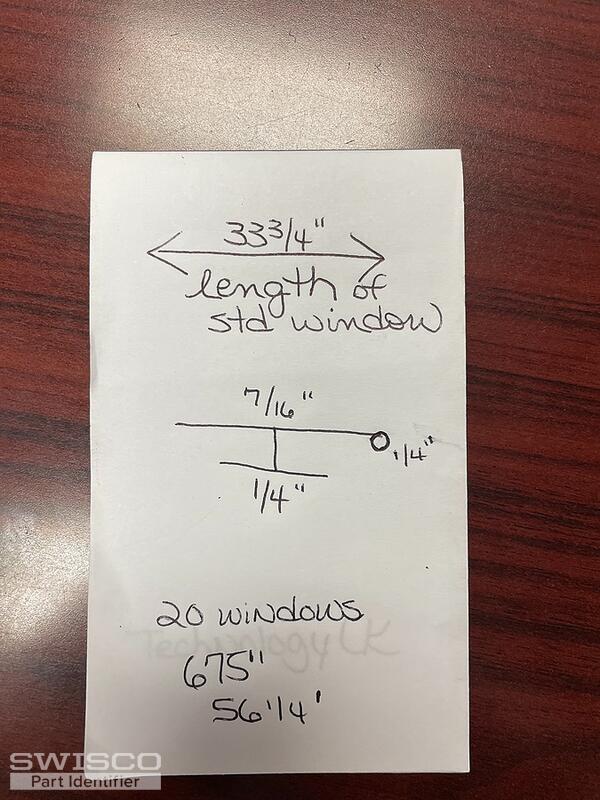 33 3/4"
length of
std window
7/16"
1/4"
1/4"
20 windows
675"
56'1/4'
SWISCO
Part Identifier